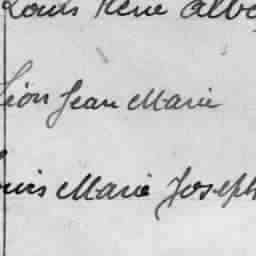 Louis René Albe
Léon Jean Marie
ouis Marie Joseph